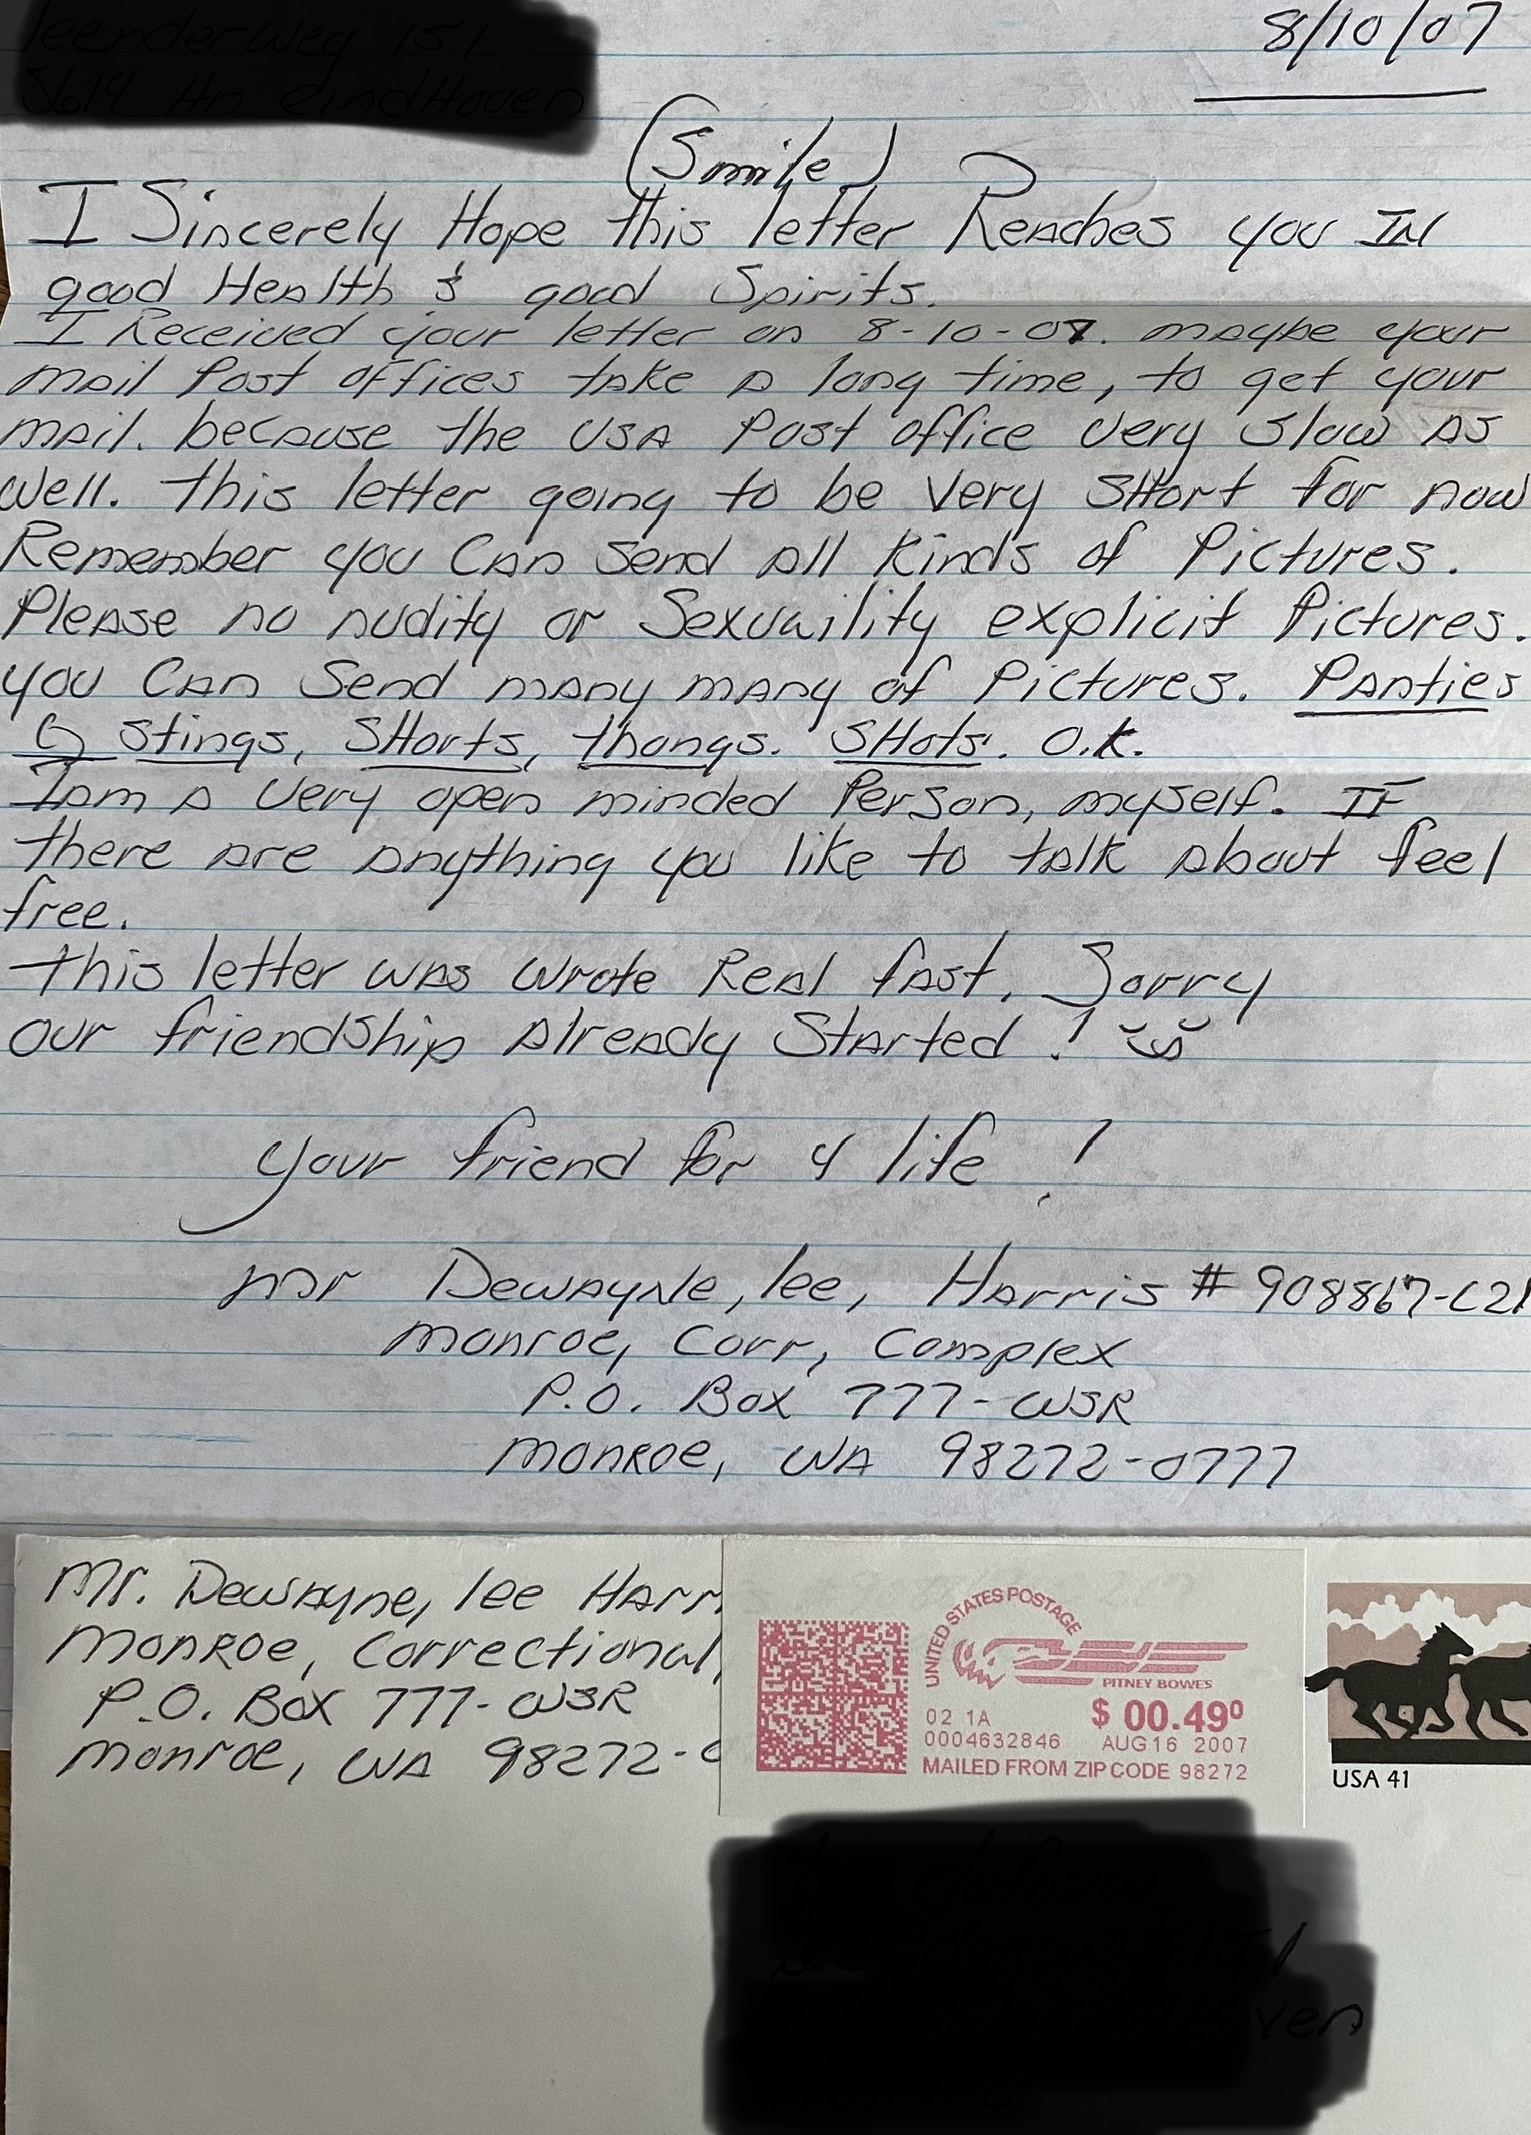 8/10/07
(Smile)
I Sincerely Hope this letter Reaches you IN
good Health & good Spirits.
I Received your letter on 8-10-07. maybe your
mail Post offices take a long time, to get your
mail. because the USA Post office very slow as
well. this letter going to be very SHort for now
Remember you Can Send all kinds of Pictures.
Please no nudity or Sexuaility explicit Pictures.
you Can Send many many of Pictures. Panties
G Stings, SHorts, thongs. SHots. O.k.
I am a very open minded Person, myself. IF
there are anything you like to talk about feel
free.
this letter was wrote Real fast, Sorry
our friendship Already Started!
your friend for 4 life!
mr Dewayne, lee, Harris # 908867-C21
monroe, Corr, Complex
P.O. Box 777-WSR
monroe, WA 98272-0777
Mr. Dewayne, lee Harr
monroe, Correctional,
P.O. Box 777-WSR
monroe, WA 98272-
UNITED STATES POSTAGE
PITNEY BOWES
02 1A $ 00.49⁰
0004632846 AUG 16 2007
MAILED FROM ZIP CODE 98272
USA 41